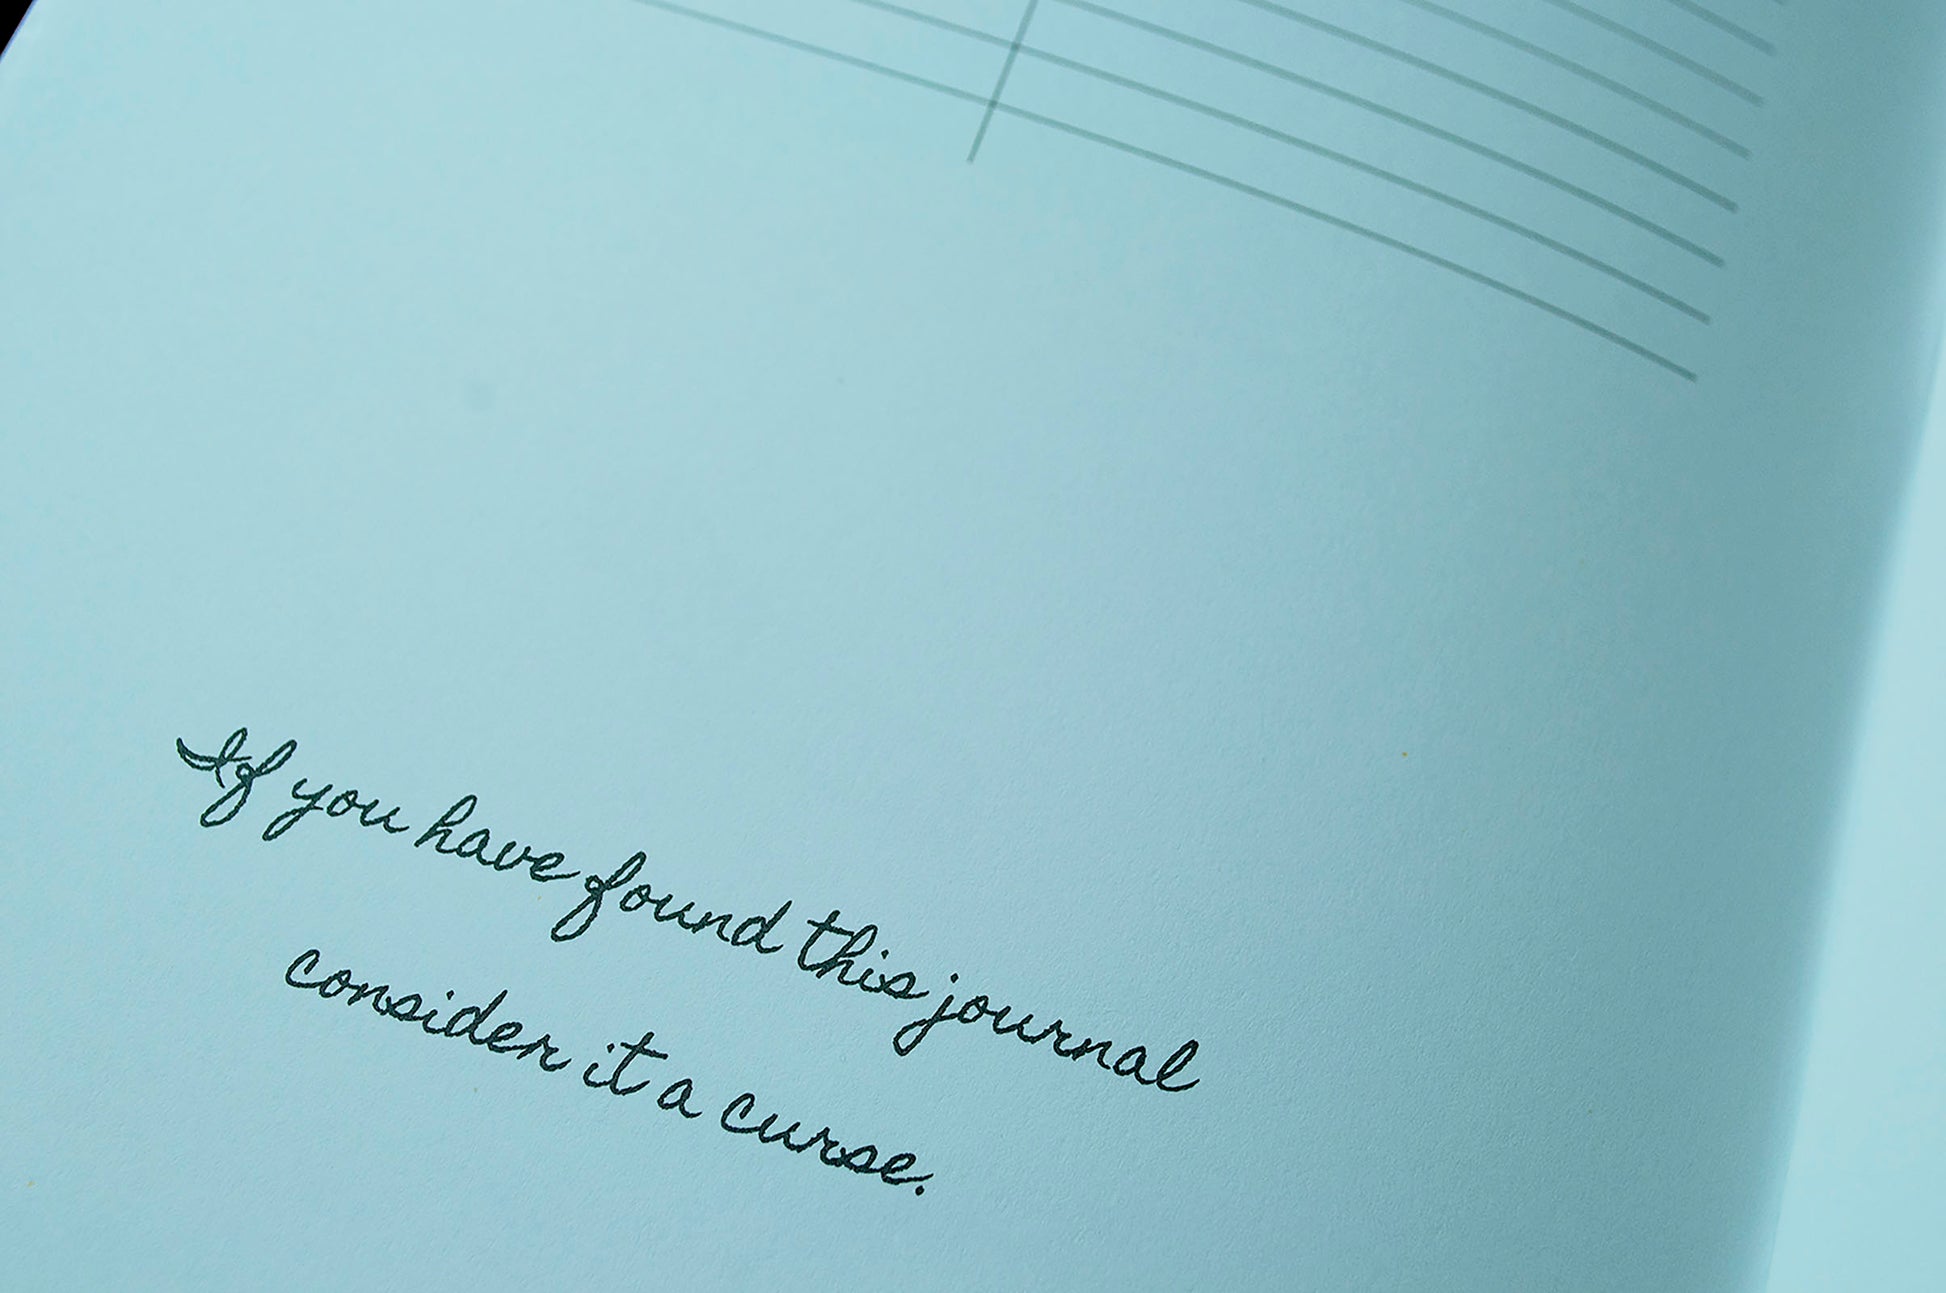 If you have found this journal
consider it a curse.